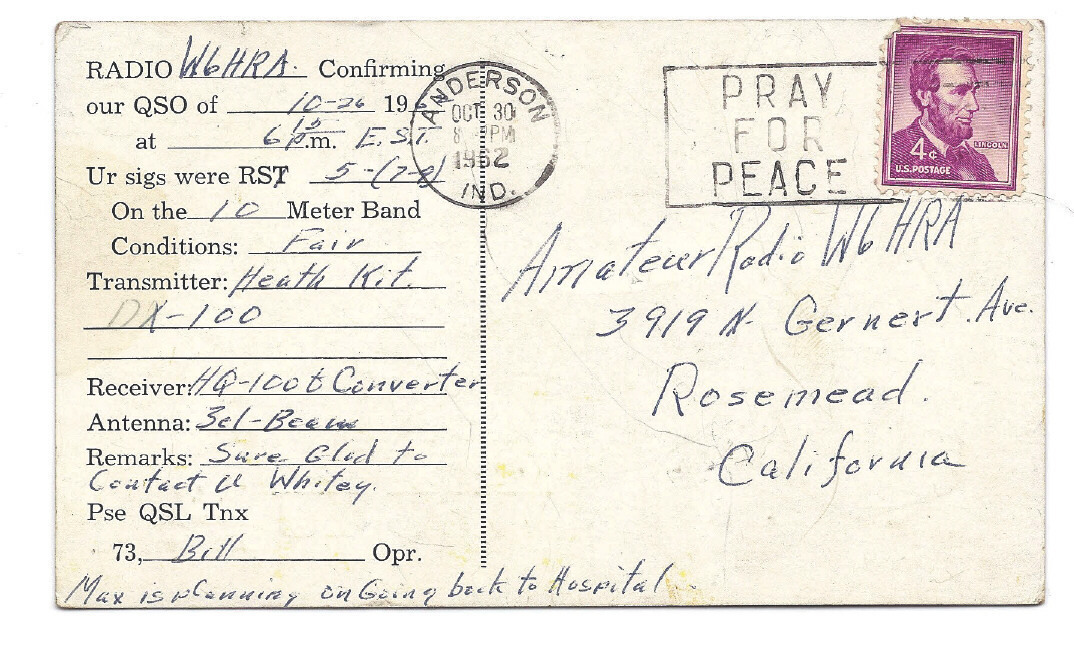 RADIO W6HRA. Confirming
our QSO of 10-26 196
at 6 15 p.m. E.S.T.
Ur sigs were RST 5-(7-8)
On the 10 Meter Band
Conditions: Fair
Transmitter: Heath Kit.
DX-100
Receiver: HQ-100 & Converter
Antenna: 3el-Beam
Remarks: Sure Glad to
Contact U Whitey.
Pse QSL Tnx
73, Bill Opr.
Max is planning on Going back to Hospital
ANDERSON
OCT 30
PM
1962
IND.
PRAY
FOR
PEACE
LINCOLN
4¢
U.S. POSTAGE
Amateur Radio W6HRA
3919 N. Gernert. Ave.
Rosemead.
California